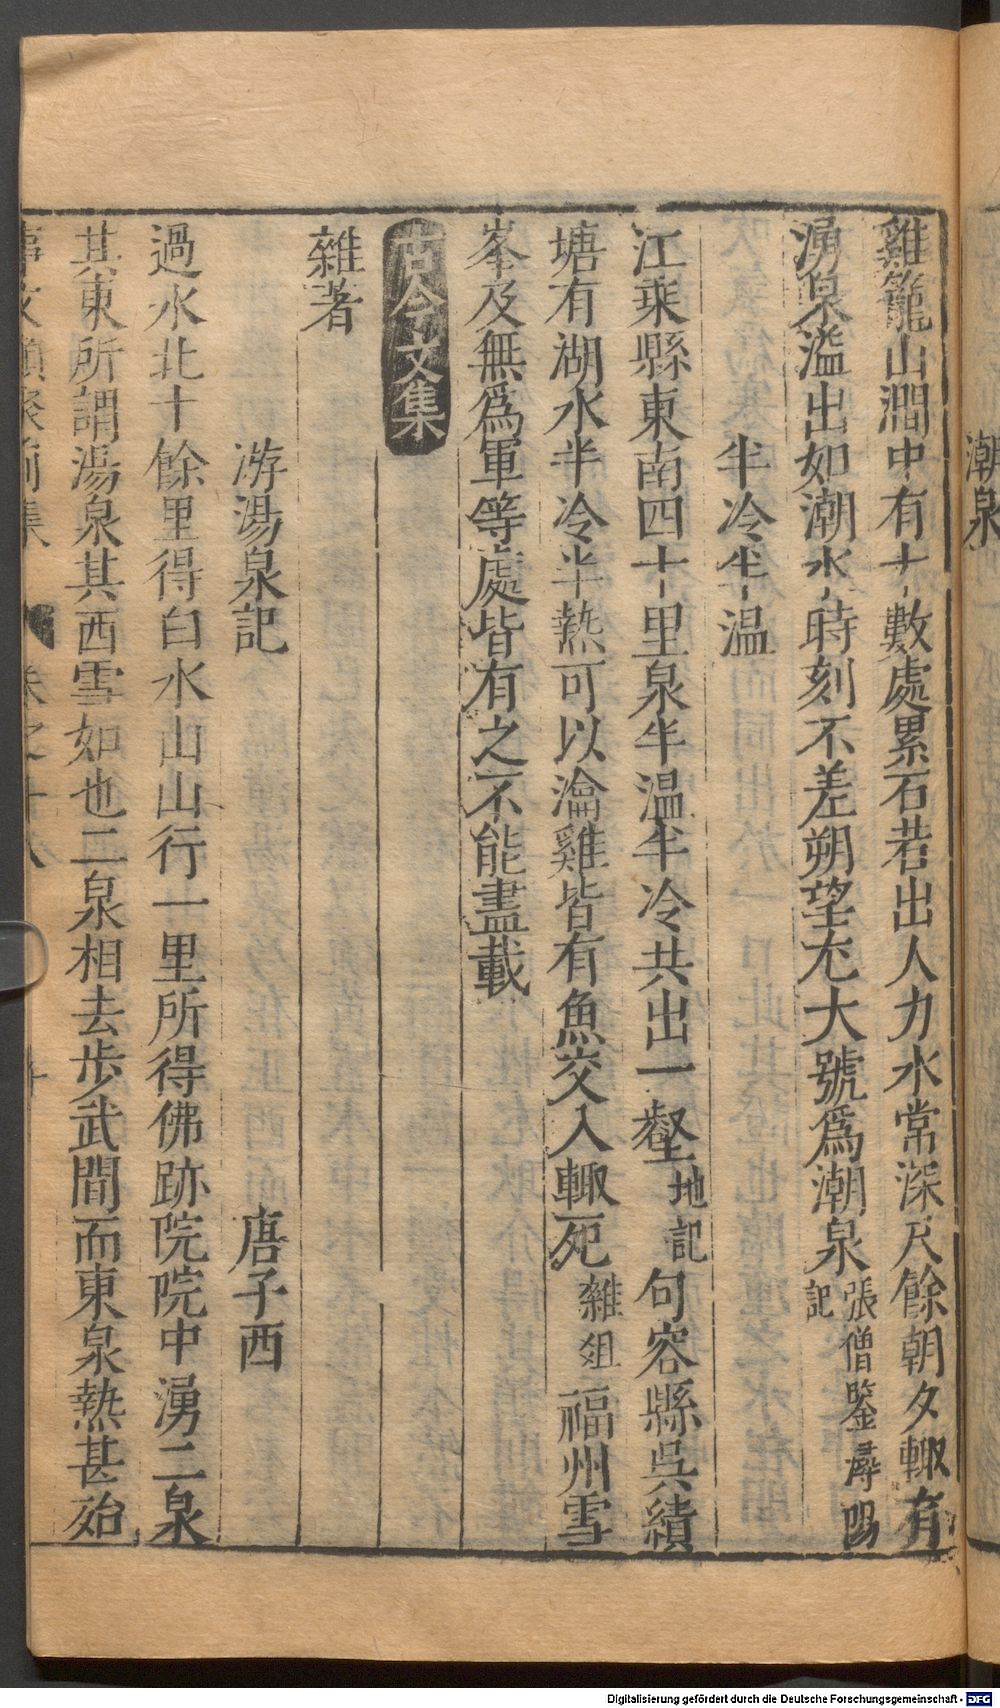 潮泉
雞籠山澗中有十數處累石若出人力水常深尺餘朝夕輙有
湧泉溢出如潮水時刻不差朔望尤大號爲潮泉張僧鑒潯陽記
半冷半温
江乘縣東南四十里泉半温半冷共出一壑地記句容縣吳績
塘有湖水半冷半熱可以瀹雞皆有魚交入輙死雜俎福州雪
峯及無爲軍等處皆有之不能盡載
古今文集
雜著
游湯泉記 唐子西
過水北十餘里得白水山山行一里所得佛跡院院中湧二泉
其東所謂湯泉其西雪如也二泉相去步武間而東泉熱甚殆
事文類聚前集 卷之十八
Digitalisierung gefördert durch die Deutsche Forschungsgemeinschaft - DFG